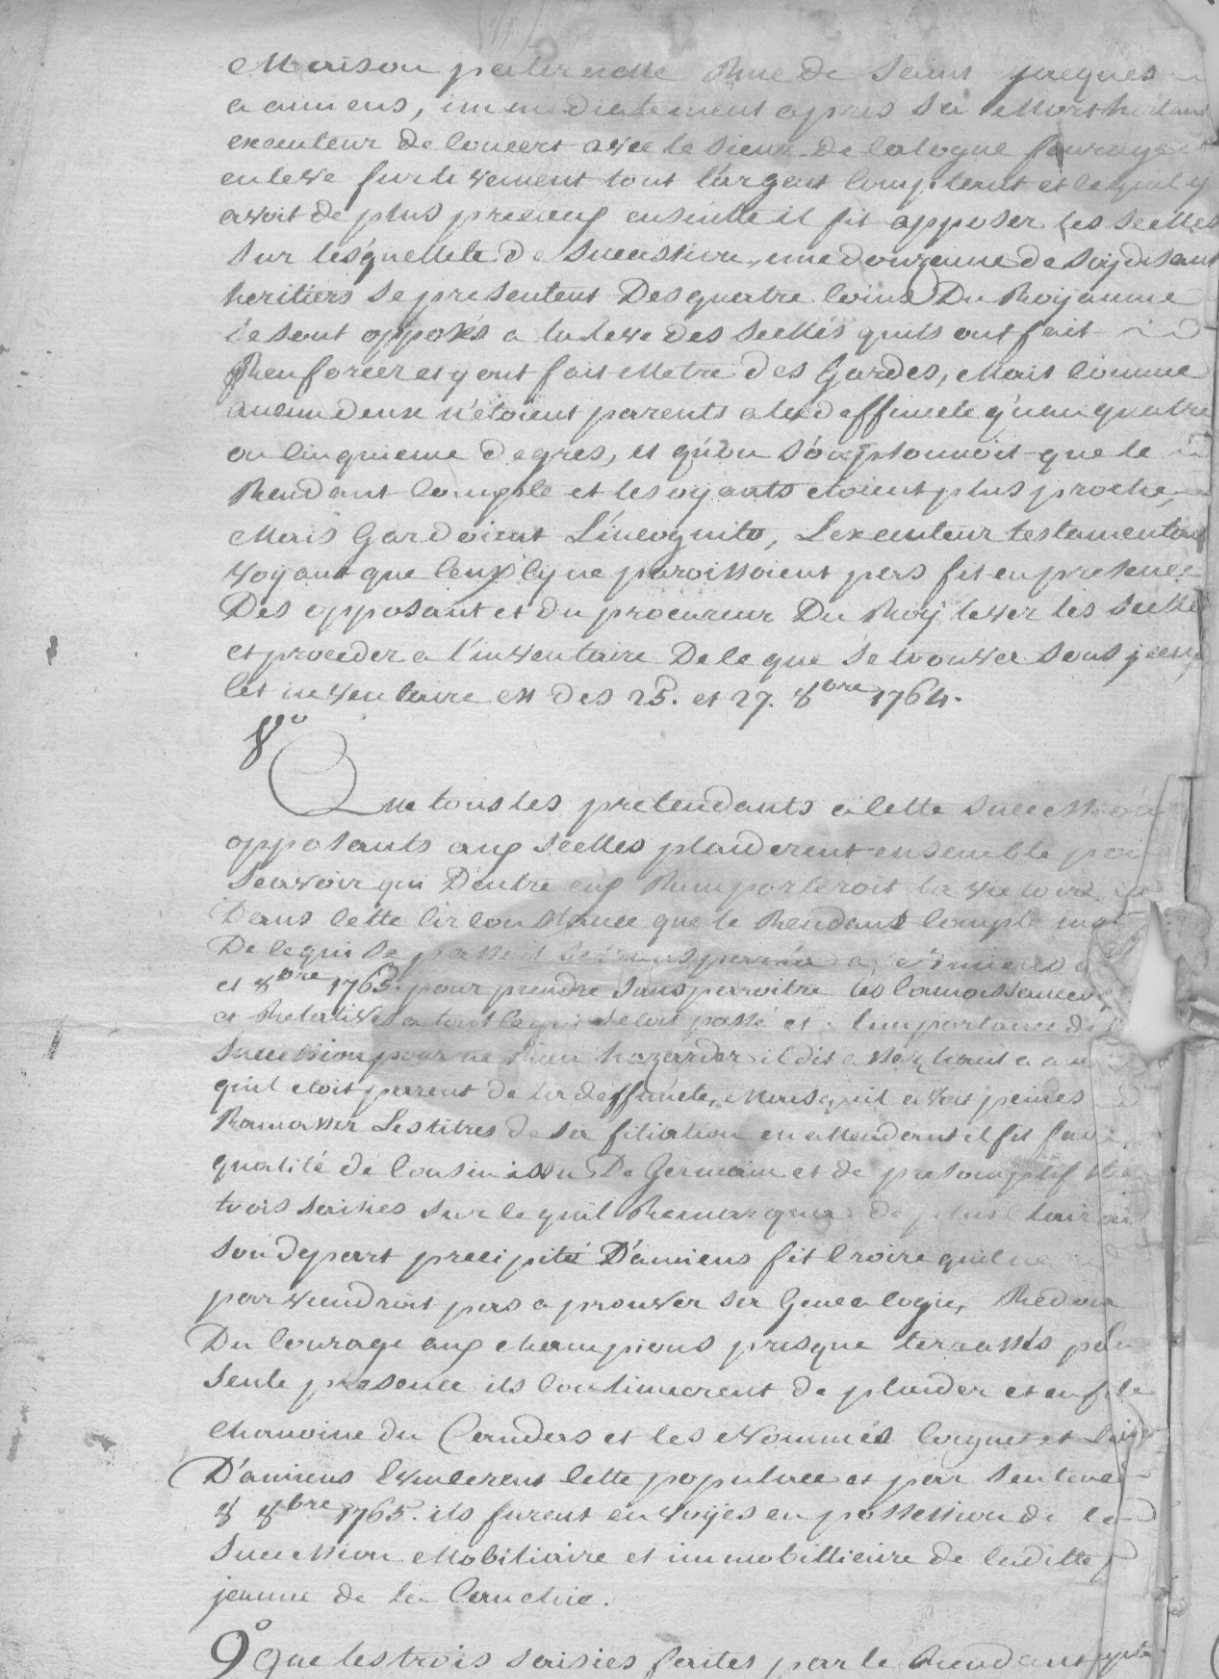 Maison paternelle Rue de Saint jacques
a amiens, immediatement apres sa Mort
executeur de Concert avec le Sieur de Calogne
enleve furtivement tout l'argent Comptant et ce qu'il y
avoit de plus precieux ensuitte il fit apposer les Scelles
Sur lesquelle de Succession, une douzaine de Soydisant
heritiers se presentent Des quatre Coins Du Royaume
se sont opposés a la leve des Scellés quils ont fait
Renforcer et y ont fait Metre des Gardes, Mais Comme
aucun deux n'étoient parents a la deffuncte qu'au quatre
ou Cinquieme degres, et qu'on Soupsonnoit que le
Rendant Compte et les oyants etoient plus proche,
Mais Gardoient L'incognito, L'executeur testamentaire
Voyant que Ceux Cy ne paroissoient pas fit en presence
Des opposant et du procureur Du Roy lever les Scelle
et proceder a l'inventaire De ce que se trouver sous
Cet inventaire est des 25. et 27. 8bre 1764.
8°
Que tous les pretendants a Cette Succession
opposants aux Scelles plaiderent ensemble pour
Scavoir qui D'entre eux Remporteroit la victoire
Dans Cette Circonstance que le Rendant Compte
De ce qui se passoit a Amiens
et 8bre 1765. pour prendre Sans paroitre les Connoissances
et Relatives a tout ce qui s'etoit passé et l'importance de
Succession pour ne Rien hazarder il dit assez haut a
qu'il etoit parent de la deffuncte, Mais qu'il avoit peine
Ramasser Les titres de sa filiation en attendant il fit
qualité de Cousin issu De Germain et de presomptif
trois saisies sur ce qu'il Remarqua de plus Clair
Son depart precipité D'amiens fit Croire quil ne
parviendroit pas a prouver sa Genealogie, Redonna
Du Courage aux champions presque terrassés
Seule presence ils Continuerent de plaider et enfin le
Chanoine du Canders et les Nommés Cagnet et
D'amiens Evincerent Cette populace et par Sentence
8 8bre 1765. ils furent envoyés en possession de la
Succession Mobiliaire et immobilliaire de laditte
jeanne de la Cauchie.
9° Que les trois Saisies faites par le Rendant